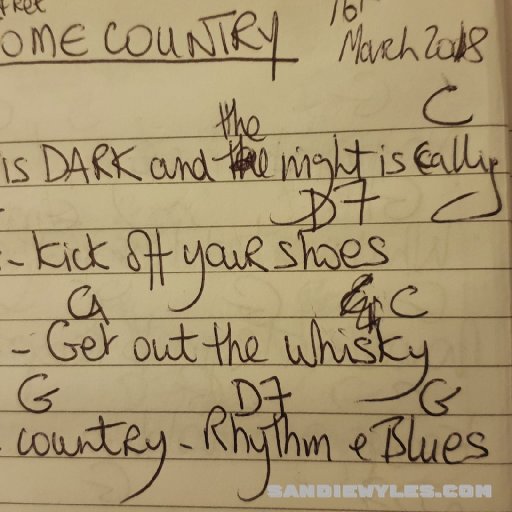 FREE
OME COUNTRY
March 2018
the
C
is DARK and the night is
D7
- kick off your shoes
G C
- Get out the whisky
G D7 G
country - Rhythm & Blues
SANDIEWYLES.COM